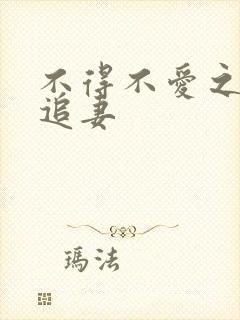 不得不愛之
追妻
瑪法